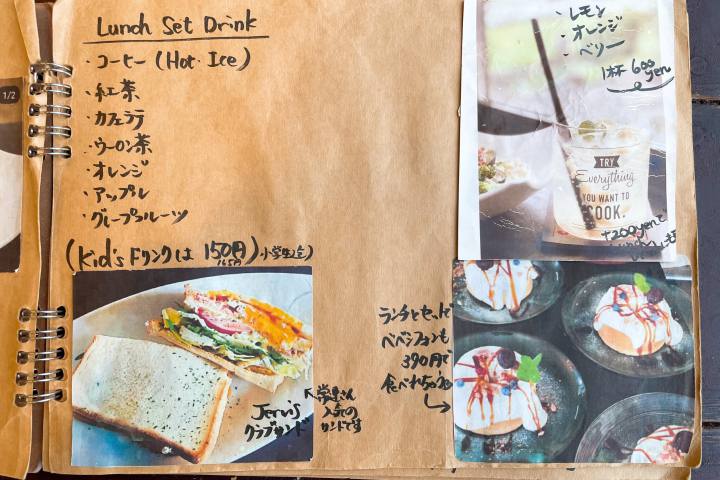 Lunch Set Drink
・コーヒー (Hot・Ice)
・紅茶
・カフェラテ
・ウーロン茶
・オレンジ
・アップル
・グレープフルーツ
(Kid's ドリンクは 150円)
1/2
・レモン
・オレンジ
・ベリー
1杯 600yen
TRY
Everything
YOU WANT TO
COOK.
+200yenで
Jerry's
クラブサンド
学生さん
人気の
サンドです
ランチとセットで
ベベシフォンも
390円で
食べれちゃう